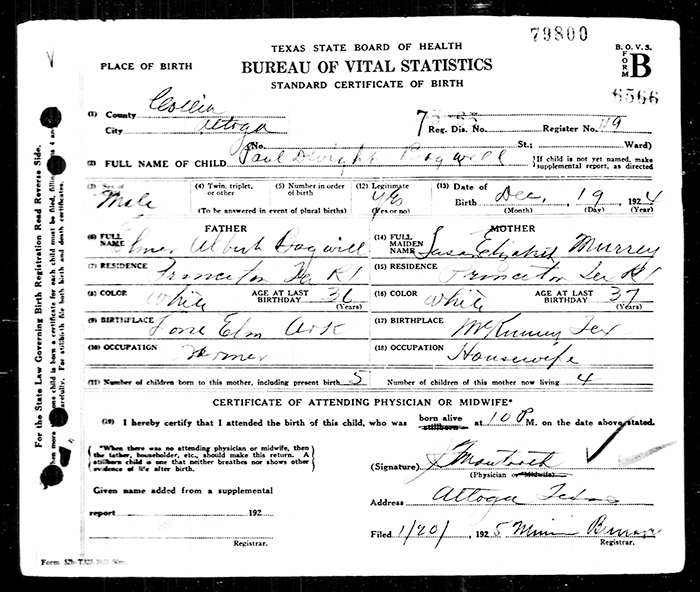 79800
TEXAS STATE BOARD OF HEALTH
B. O. V. S.
FORM B
PLACE OF BIRTH
BUREAU OF VITAL STATISTICS
STANDARD CERTIFICATE OF BIRTH
6566
(1) County Collin
City Altoga
Reg. Dis. No. Register No. 119
(No. St.; Ward)
(2) FULL NAME OF CHILD Paul Dwight Bagwill
If child is not yet named, make supplemental report, as directed
(3) Sex of Male
(4) Twin, triplet, or other
(5) Number in order of birth
(To be answered in event of plural births)
(12) Legitimate Yes (Yes or no)
(13) Date of Birth Dec, 19 1924
(Month) (Day) (Year)
FATHER
(6) FULL NAME Elmer Albert Bagwill
(7) RESIDENCE Princeton Tex R1
(8) COLOR White AGE AT LAST BIRTHDAY 36 (Years)
(9) BIRTHPLACE Lone Elm Ark
(10) OCCUPATION Farmer
MOTHER
(14) FULL MAIDEN NAME Susan Elizabeth Murrey
(15) RESIDENCE Princeton Tex R1
(16) COLOR White AGE AT LAST BIRTHDAY 37 (Years)
(17) BIRTHPLACE McKinney Tex
(18) OCCUPATION Housewife
(11) Number of children born to this mother, including present birth 5 Number of children of this mother now living 4
CERTIFICATE OF ATTENDING PHYSICIAN OR MIDWIFE*
(19) I hereby certify that I attended the birth of this child, who was born alive stillborn at 10 P M. on the date above stated.
*When there was no attending physician or midwife, then
the father, householder, etc., should make this return. A
stillborn child is one that neither breathes nor shows other
evidence of life after birth.
(Signature)
(Physician or Midwife)
Given name added from a supplemental
report 192
Registrar.
Address Altoga Texas
Filed 1/20/ 1925 Registrar.
Form
For the State Law Governing Birth Registration Read Reverse Side.